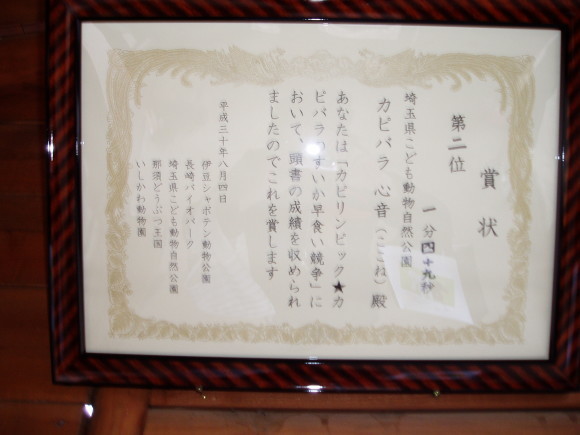 賞状
第二位
一分四十九秒
埼玉県こども動物自然公園
カピバラ 心音(ここね)殿
あなたは「カピリンピック★カ
ピバラのすいか早食い競争」に
おいて、頭書の成績を収められ
ましたのでこれを賞します
平成三十年八月四日
伊豆シャボテン動物公園
長崎バイオパーク
埼玉県こども動物自然公園
那須どうぶつ王国
いしかわ動物園